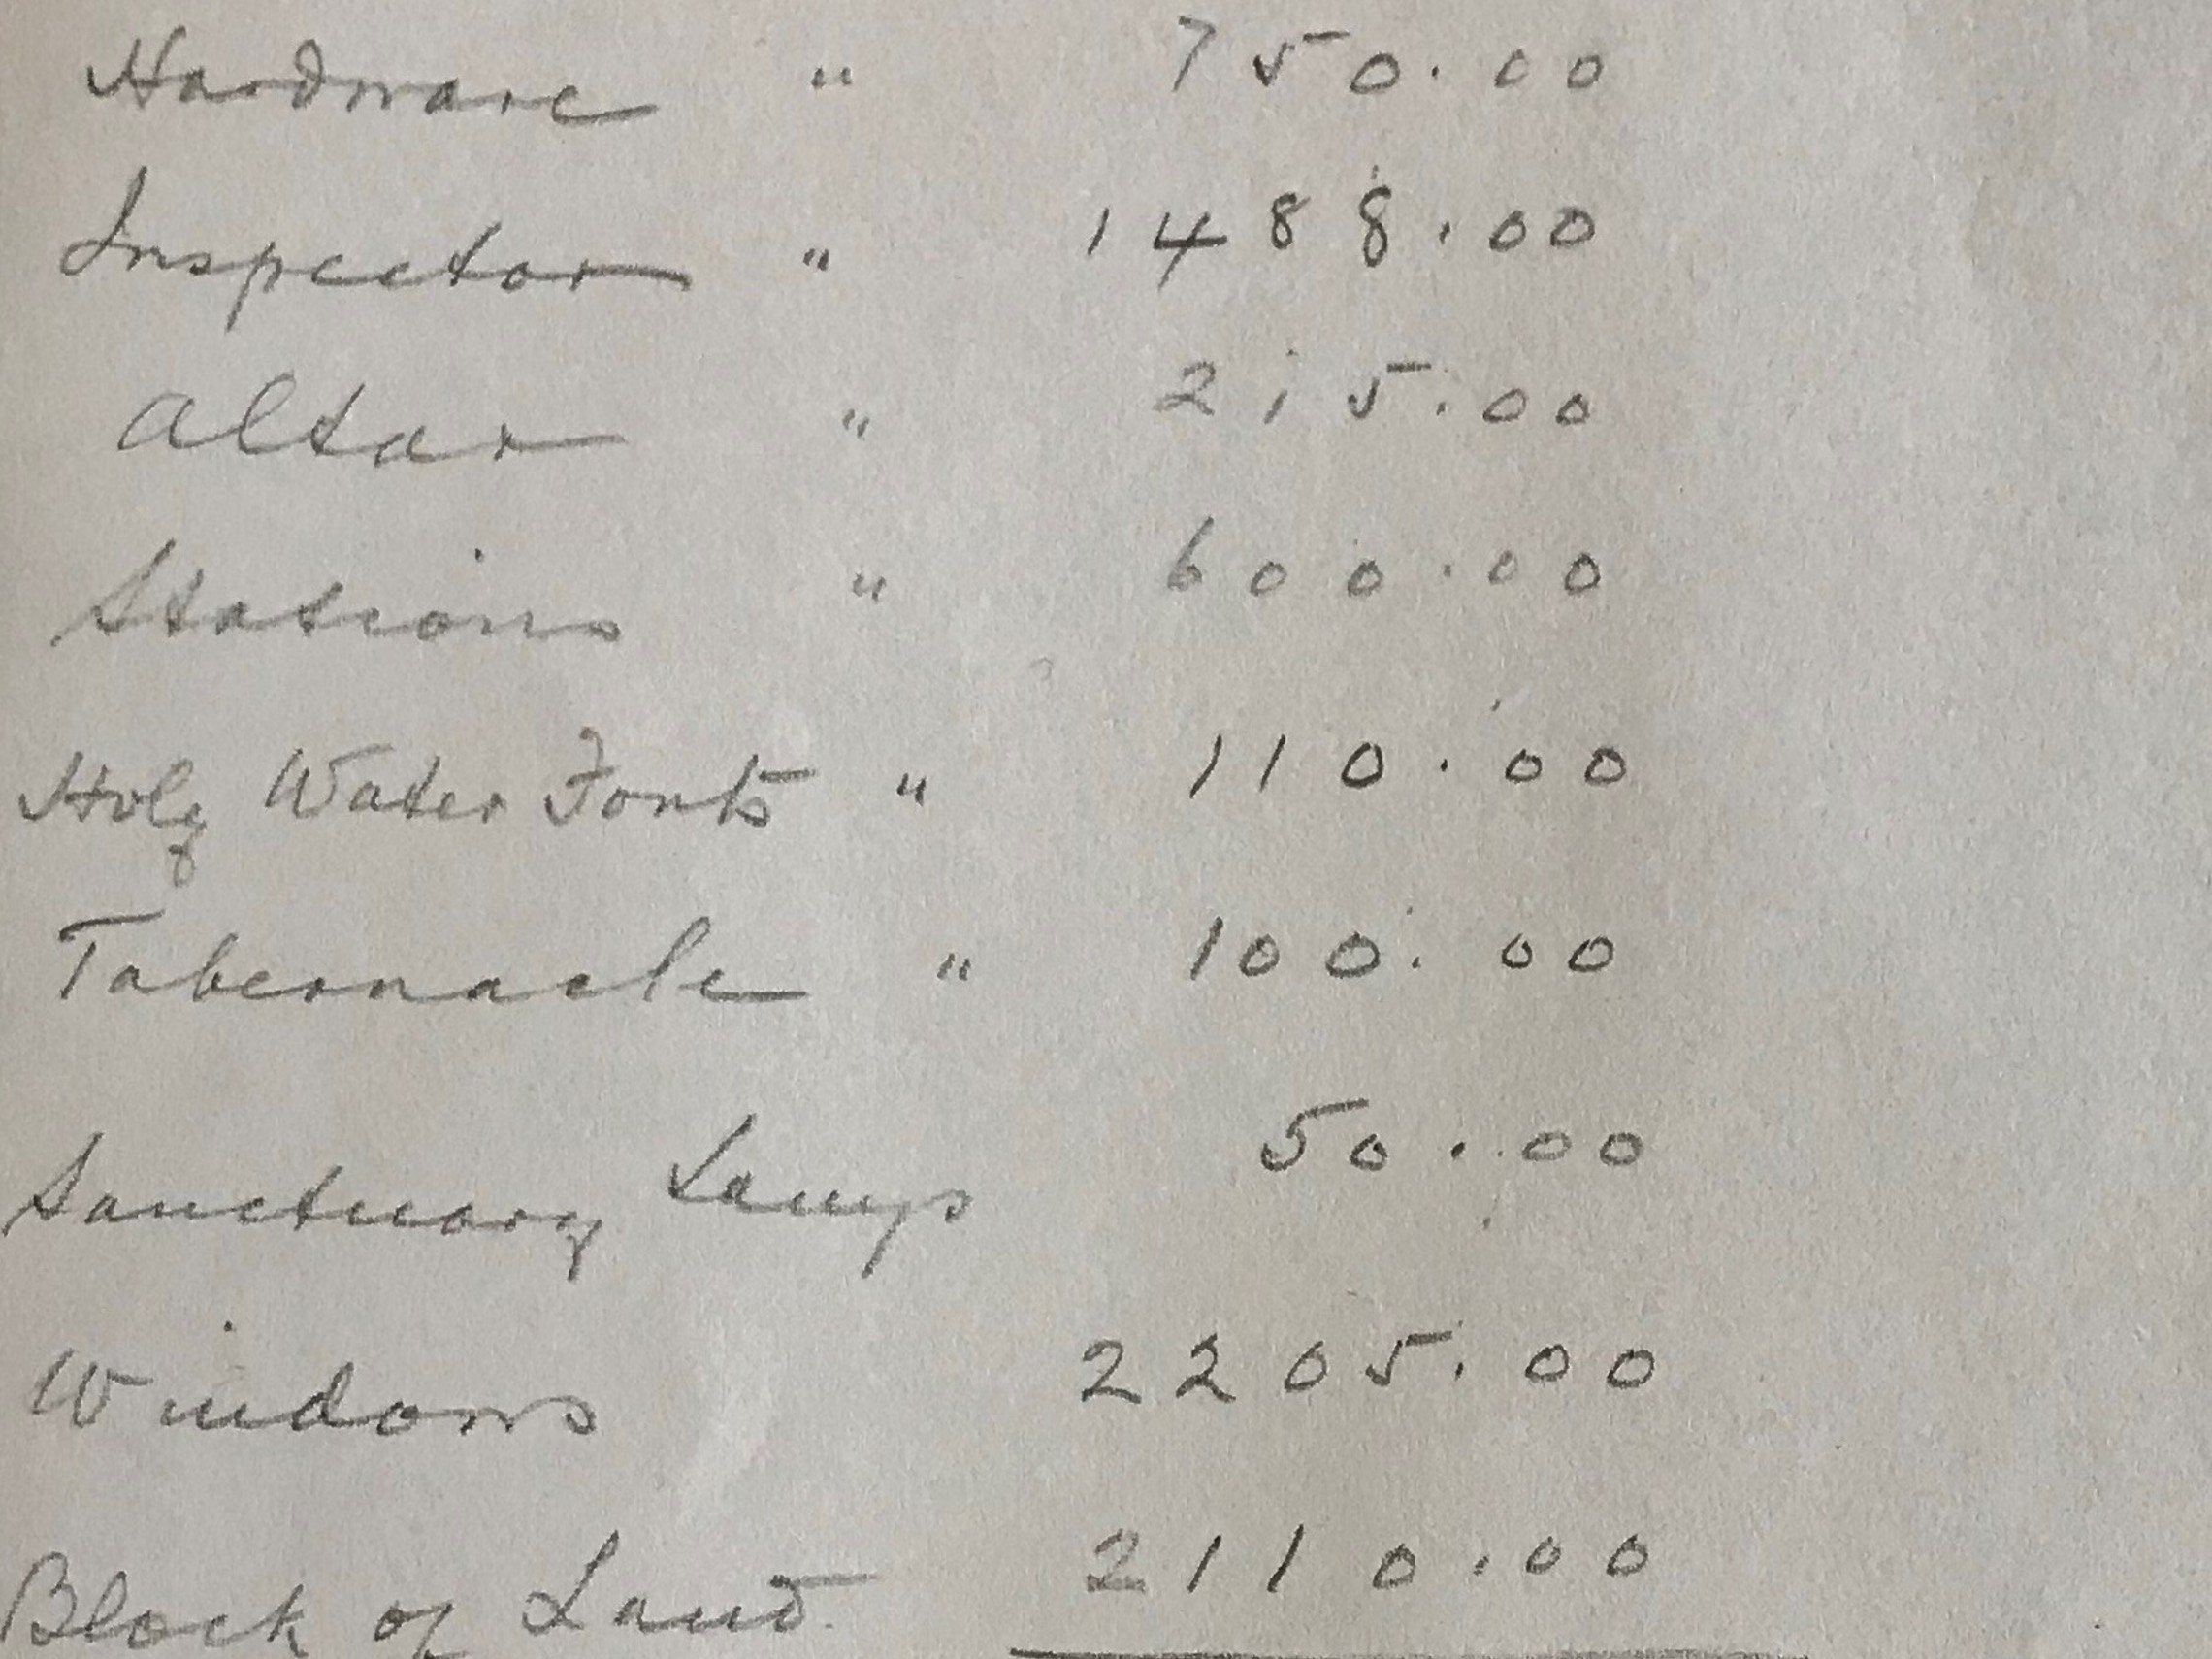 Hardware " 750.00
Inspector " 1488.00
Altar " 215.00
Stations " 600.00
Holy Water Fonts " 110.00
Tabernacle " 100.00
Sanctuary Lamps 50.00
Windows 2205.00
Block of Land 2110.00